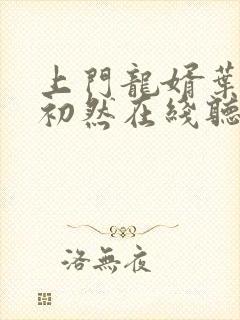 上門龍婿葉
初然在綫聽
洛無夜